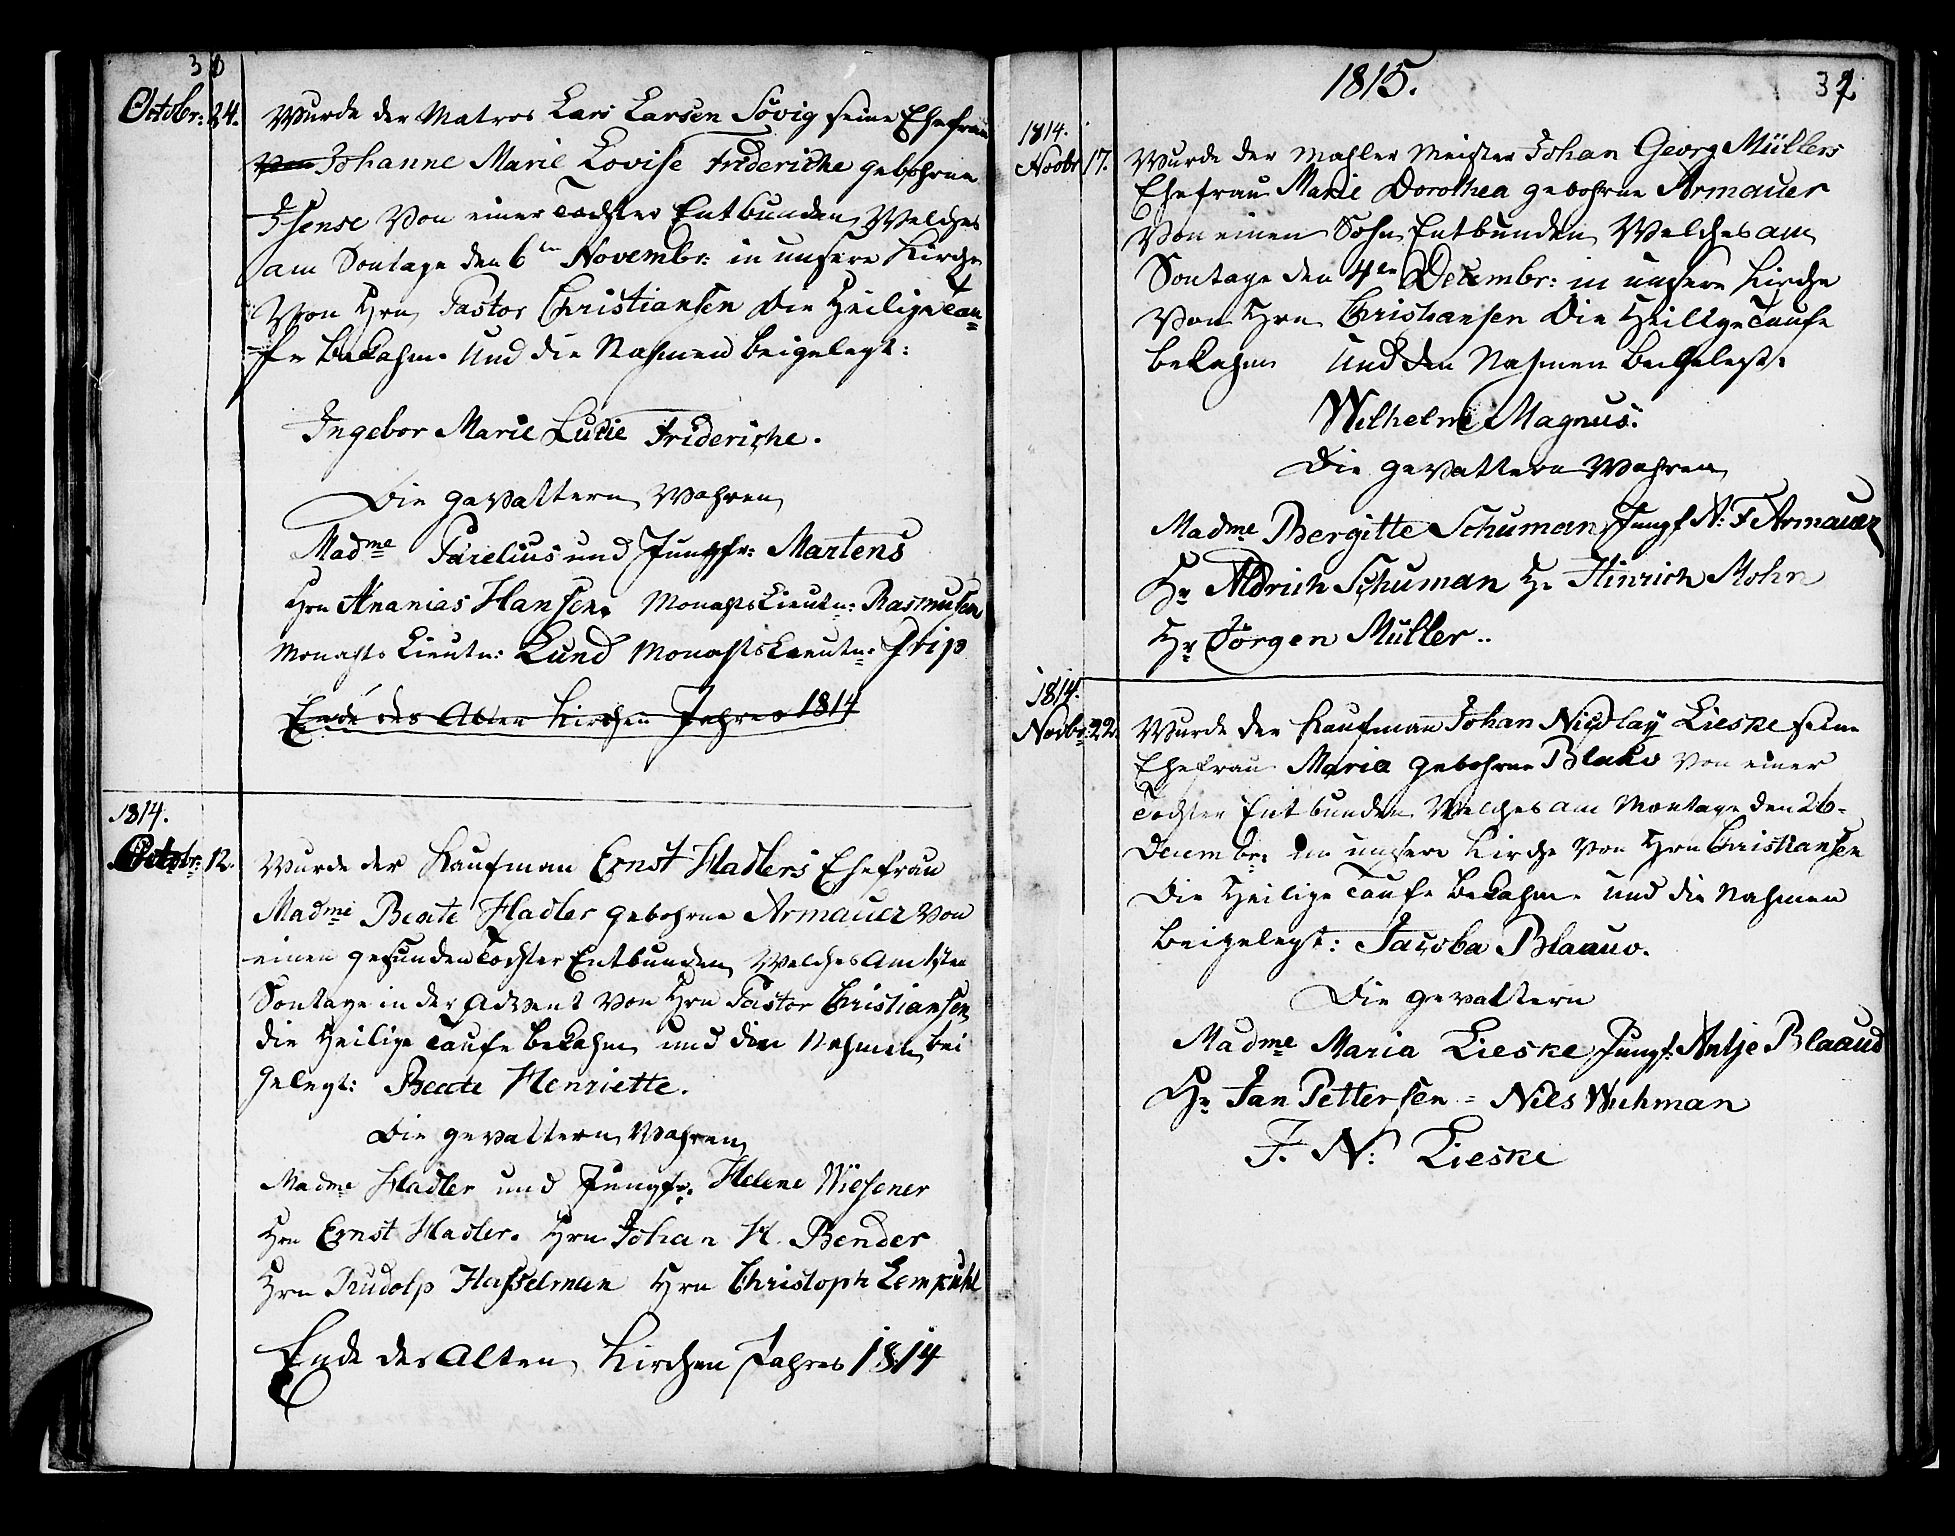 38
Octobr: 24. Wurde der Matros Lars Larsen Sövig seine Ehefrau
von Johanne Marie Lovise Frideriche gebohrne
Isense Von einer Tochter Entbunden, Welches
am Sontage den 6ten Novembr: in unsere Kirche
Von Hrn Pastor Christiansen Die Heilige Tau=
fe bekahm. Und die Nahmen beigelegt:
Ingebor Marie Lucie Frideriche.
Die gevattern Wahren
Madme Parelius und Jungfr: Martens
Hrn Ananias Hansen. MonathsLieutn: Rasmusen
Monaths Lieutn: Lund MonathsLieutn: Frip
Ende des Alten Kirchen Jahres 1814
1814.
Octobr: 12. Wurde der Kaufman Ernst Hadlers Ehefrau
Madme Beate Hadler gebohrne Armauer Von
einen gesunden Tochter Entbunden, Welches Am 1sten
Sontage in der Advent Von Hrn Pastor Christiansen
die Heilige Taufe bekahm, und den Nahmen bei
gelegt: Beate Henriette.
Die gevattern Wahren
Madme Hadler und Jungfr. Helene Wiesener
Hrn Ernst Hadler. Hrn Johan H. Bender
Hrn Rudolp Hasselman Hrn Christoph Lempuhl
Ende des Alten, Kirchen Jahres 1814
1815.
1814.
Novbr 17. Wurde der Mahler Meister Johan Georg Müllers
Ehefrau Marie Dorothea gebohrne Armauer
Von einen Sohn Entbunden Welches am
Sontage den 4en Decembr: in unsere Kirche
Von Hrn Christiansen Die Heilige Taufe
bekahm Und den Nahmen beigelegt:
Wilhelm Magnus.
Die gevattern Wahren
Madme Bergitte Schuman, Jungf A: F Armauer
Hr Aldrich Schuman Hr Hinrich Mohn
Hr Jörgen Müller..
1814.
Novbr 22. Wurde der Kaufman Johan Nicolay Lieske seine
Ehefrau Maria gebohrne Blauw Von einer
Tochter Entbunden Welches am Montage den 26=
Decembr: in unsere Kirche Von Hrn Christiansen
Die Heilige Taufe bekahm. und die Nahmen
beigelegt: Jacoba Blaauw.
Die gevattern
Madme Maria Lieske, Jungf: Antje Blaauw
Hr Jan Pettersen = Nils Wichman
J. N: Lieske